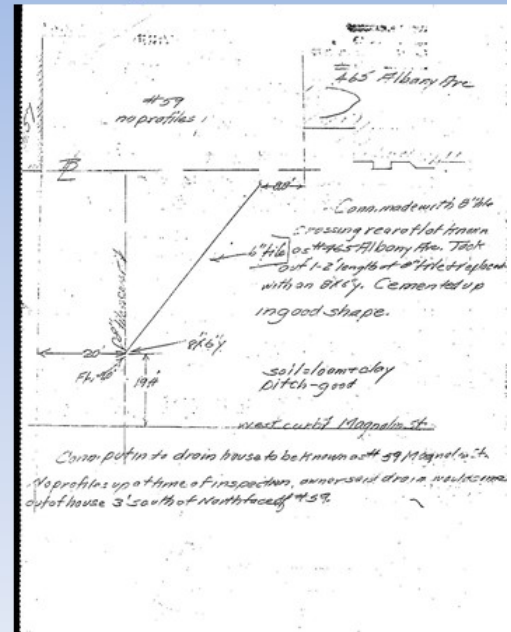 465 Albany Ave
#59
no profiles
Conn. made with 8" tile
crossing rear of lot known
6" tile
as #465 Albany Ave. Took
out 1-2' length of 8" tile + replaced
with an 8x6"y. Cemented up
in good shape.
20'
8"x6"y.
soil=loam+clay
pitch-good
west curb Magnolia St.
Conn put in to drain house to be known as #59 Magnolia St.
No profiles up at time of inspection, owner said drain would come
out of house 3' south of North face of #59.